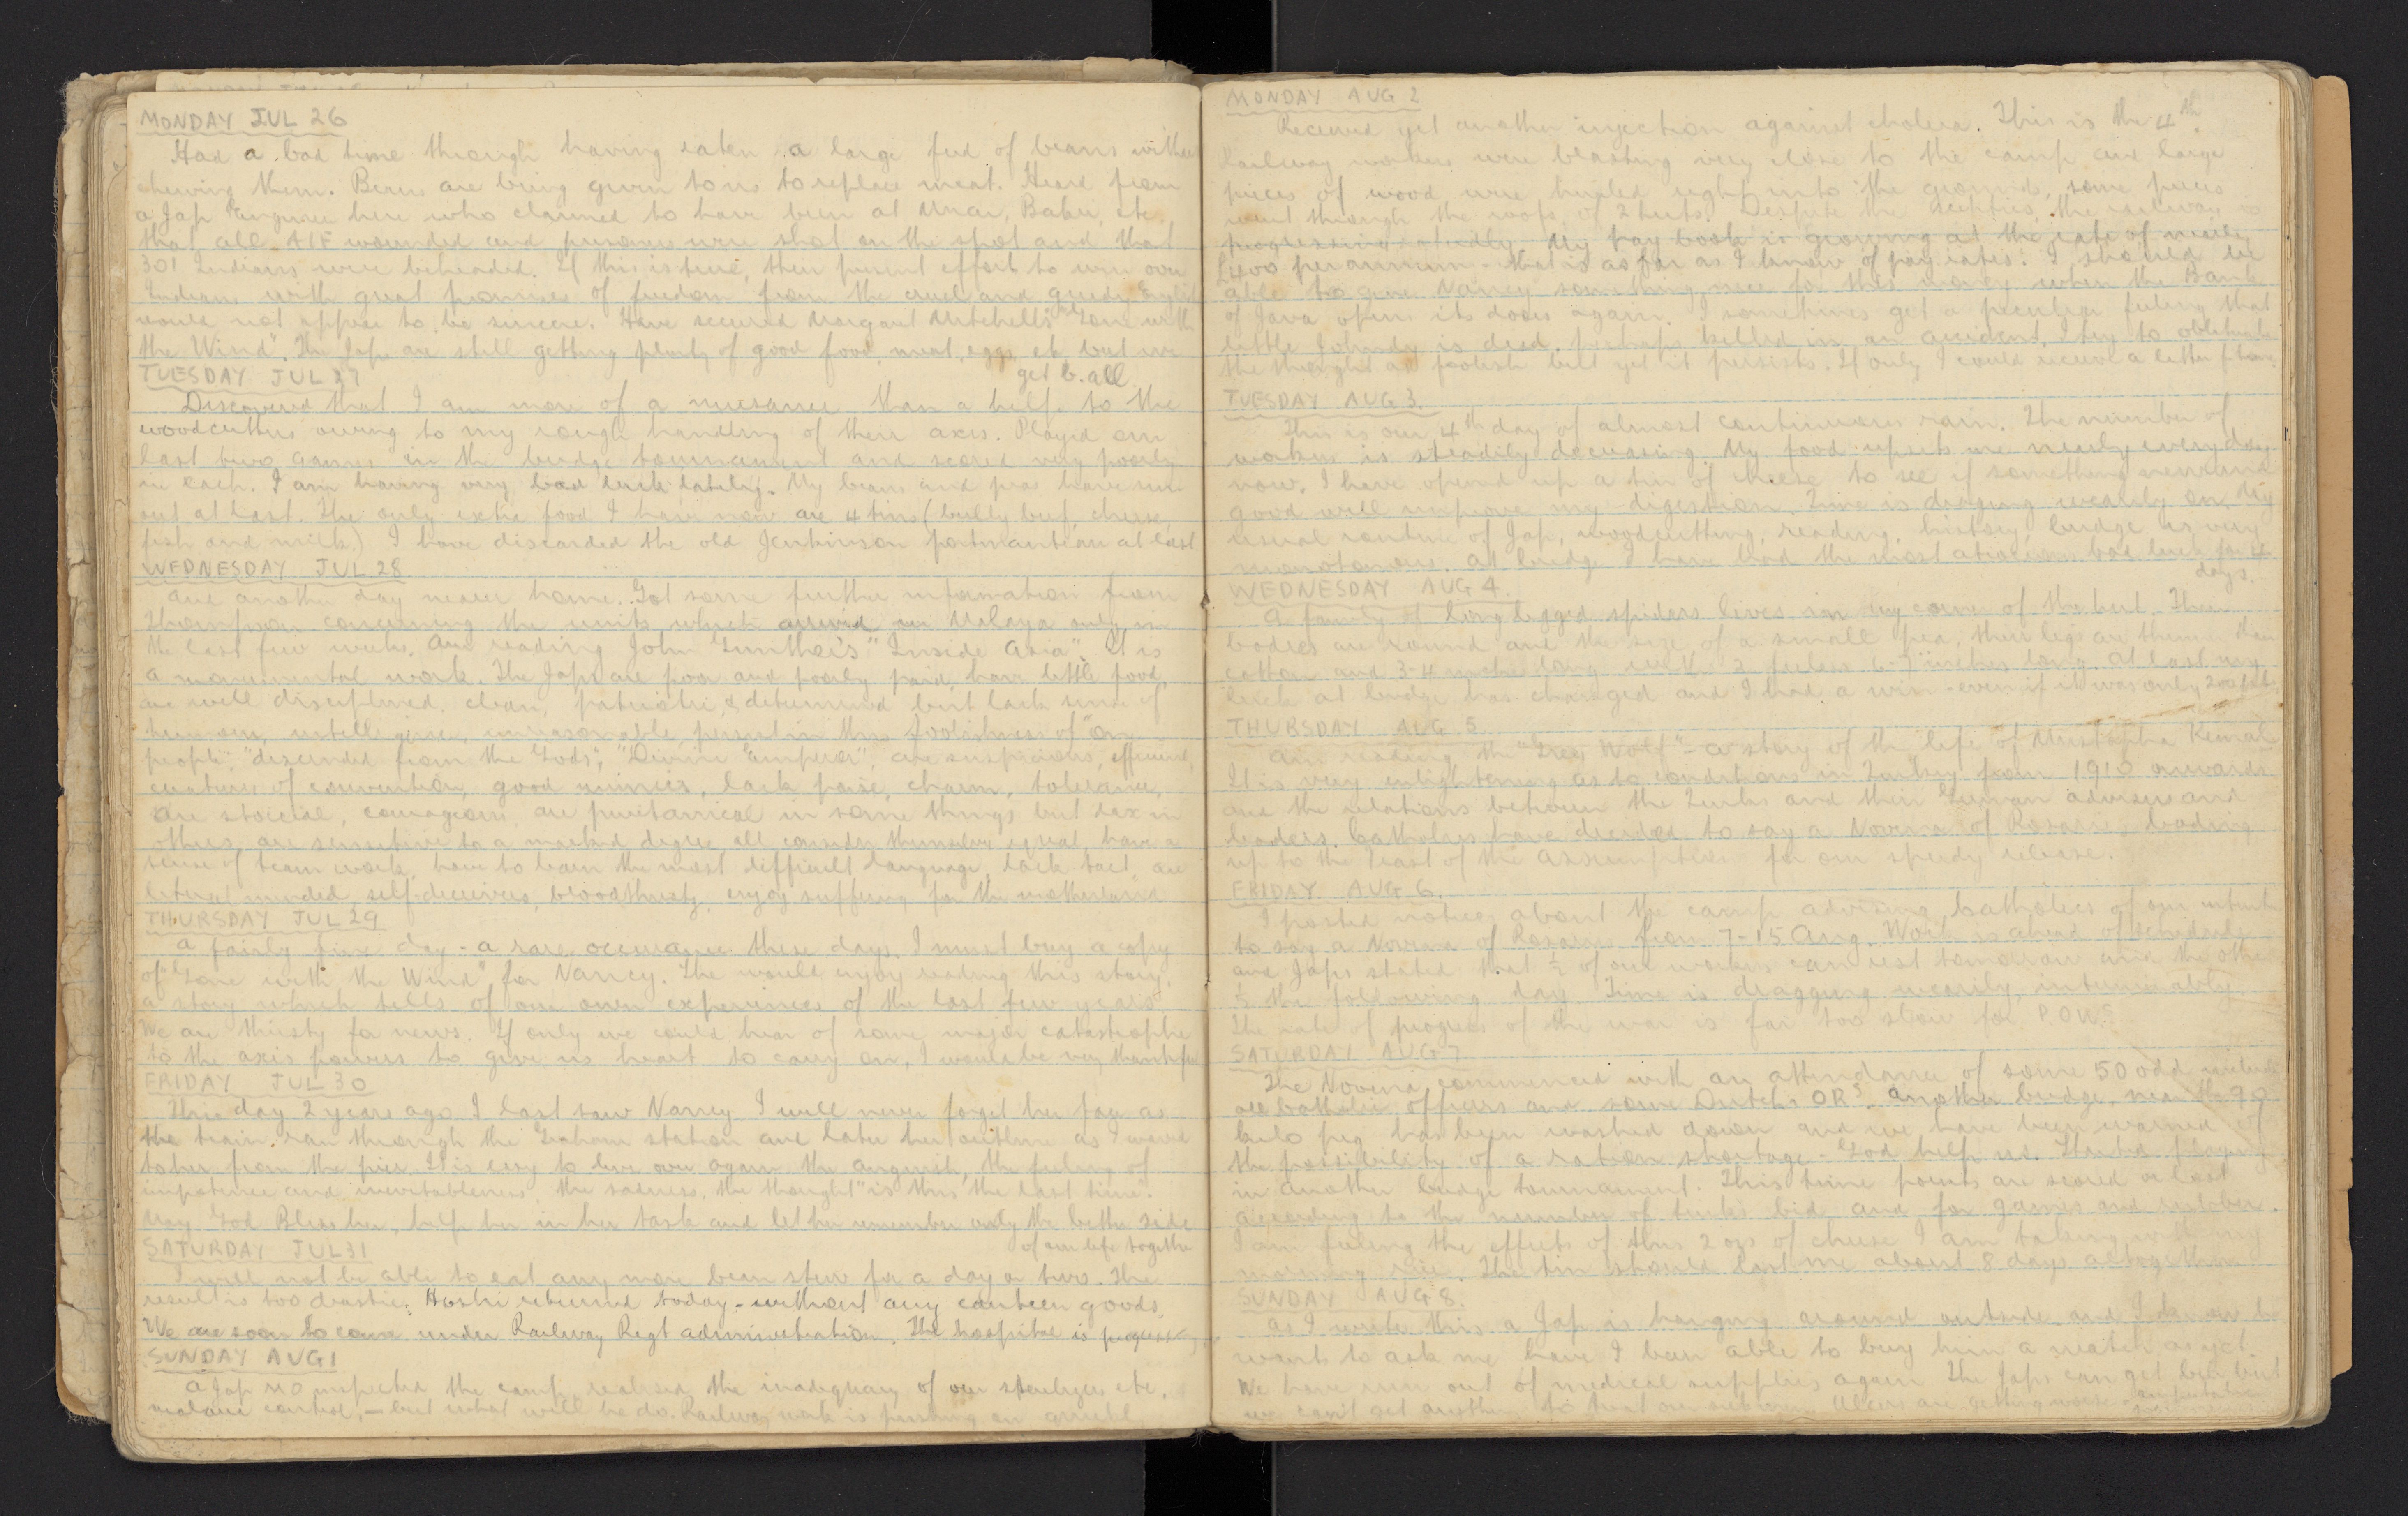 MONDAY JUL 26
Had a bad time through having eaten a large feed of beans without
chewing them. Beans are being given to us to replace meat. Heard from
a Jap Engineer here who claimed to have been at Muar, Bakri, etc,
that all AIF wounded and prisoners were shot on the spot and that
301 Indians were beheaded. If this is true, their present effort to win over
Indians with great promises of freedom from the cruel and greedy English
would not appear to be sincere. Have secured Margaret Mitchell's "Gone with
the Wind". The Japs are still getting plenty of good food, meat, eggs, etc, but we
get b. all.
TUESDAY JUL 27
Discovered that I am more of a nuisance than a help to the
woodcutters owing to my rough handling of their axes. Played our
last two games in the bridge tournament and scored very poorly
in each. I am having very bad luck lately. My beans and peas have run
out at last. The only extra food I have now are 4 tins (bully beef, cheese,
fish and milk.) I have discarded the old Jenkinson portmanteau at last.
WEDNESDAY JUL 28
And another day nearer home. Got some further information from
Thompson concerning the units which arrived in Malaya only in
the last few weeks. Am reading John Gunther's "Inside Asia". It is
a monumental work. The Japs are poor and poorly paid, have little food,
are well disciplined, clean, patriotic, & determined but lack sense of
humour, intelligence, unreasonable, persist in this foolishness of "one
people", "descended from the Gods", "Divine Emperor", are suspicious, efficient,
creatures of convention, good mimics, lack poise, charm, tolerance,
are stoical, courageous, are puritanical in some things but lax in
others, are sensitive to a marked degree, all consider themselves equal, have a
sense of team work, have to learn the most difficult language, lack tact, are
literal minded, self-deceivers, bloodthirsty, enjoy suffering for the motherland
THURSDAY JUL 29
A fairly fine day - a rare occurance these days. I must buy a copy
of "Gone with the Wind" for Nancy. She would enjoy reading this story,
a story which tells of our own experiences of the last few years.
We are thirsty for news. If only we could hear of some major catastrophe
to the axis powers to give us heart to carry on, I would be very thankful
FRIDAY JUL 30
This day 2 years ago I last saw Nancy. I will never forget her face as
the train ran through the station and later her outline as I waved
to her from the pier. It is easy to live over again the anguish, the feeling of
impotence and inevitableness, the sadness, the thought "is this the last time".
May God Bless her, help her in her task and let her remember only the better side
of our life together
SATURDAY JUL 31
I will not be able to eat any more bean stew for a day or two. The
result is too drastic. Hoshi returned today - without any canteen goods.
We are soon to come under Railway Regt administration. The hospital is progressing
SUNDAY AUG 1
A Jap MO inspected the camp, realised the inadequacy of our sterilizers etc,
malaria control, - but what will he do. Railway work is pushing on
MONDAY AUG 2
Received yet another injection against cholera. This is the 4th.
Railway workers were blasting very close to the camp and large
pieces of wood were hurled right into the ground, some pieces
went through the roofs of 2 huts. Despite the sceptics, the railway is
progressing steadily. My pay book is growing at the rate of nearly
£400 per annum - that is as far as I know of pay rates. I should be
able to give Nancy something nice for this money when the Bank
of Java opens its doors again. I sometimes get a peculiar feeling that
little Johndy is dead, perhaps killed in an accident. I try to obliterate
the thought as foolish but yet it persists. If only I could receive a letter from
TUESDAY AUG 3.
This is our 4th day of almost continuous rain. The number of
workers is steadily decreasing. My food upsets me nearly every day
now. I have opened up a tin of cheese to see if something new and
good will improve my digestion. Time is draging wearily on. My
usual routine of Jap, woodcutting, reading, history, bridge is very
monotonous. At bridge I have had the most atrocious bad luck for 4
days.
WEDNESDAY AUG 4.
A family of long legged spiders lives in my corner of the hut. Their
bodies are round and the size of a small pea, their legs are thinner than
cotton and 3-4 inches long with 2 feelers 6-7 inches long. At last my
luck at bridge has changed and I had a win - even if it was only 200
THURSDAY AUG 5
Am reading the "Grey Wolf" - a story of the life of Mustapha Kemal.
It is very enlightening as to conditions in Turkey from 1910 onwards
and the relations between the Turks and their German advisers and
leaders. Catholics have decided to say a Novena of Rosaries leading
up to the Feast of the Assumption for our speedy release.
FRIDAY AUG 6.
I posted notices about the camp advising Catholics of our intention
to say a Novena of Rosaries from 7-15 Aug. Work is ahead of schedule
and Japs stated that ½ of our workers can rest tomorrow and the other
½ the following day. Time is dragging wearily, interminably.
The rate of progress of the war is far too slow for P.O.W.s
SATURDAY AUG 7
The Novena commenced with an attendance of some 50 odd
all Catholic officers and some Dutch ORs. Another bridge, near the 90
kilo peg has been washed down and we have been warned of
the possibility of a ration shortage - God help us. Started playing
in another bridge tournament. This time points are scored or lost
according to the number of tricks bid and for games and rubber.
I am feeling the effects of this 2 ozs of cheese I am taking with my
morning rice. The tin should last me about 8 days altogether
SUNDAY AUG 8.
As I write this a Jap is hanging around outside and I know he
wants to ask me have I been able to buy him a watch as yet.
We have run out of medical supplies again. The Japs can get beer but
we can't get anything to treat our sick men. Ulcers are getting worse